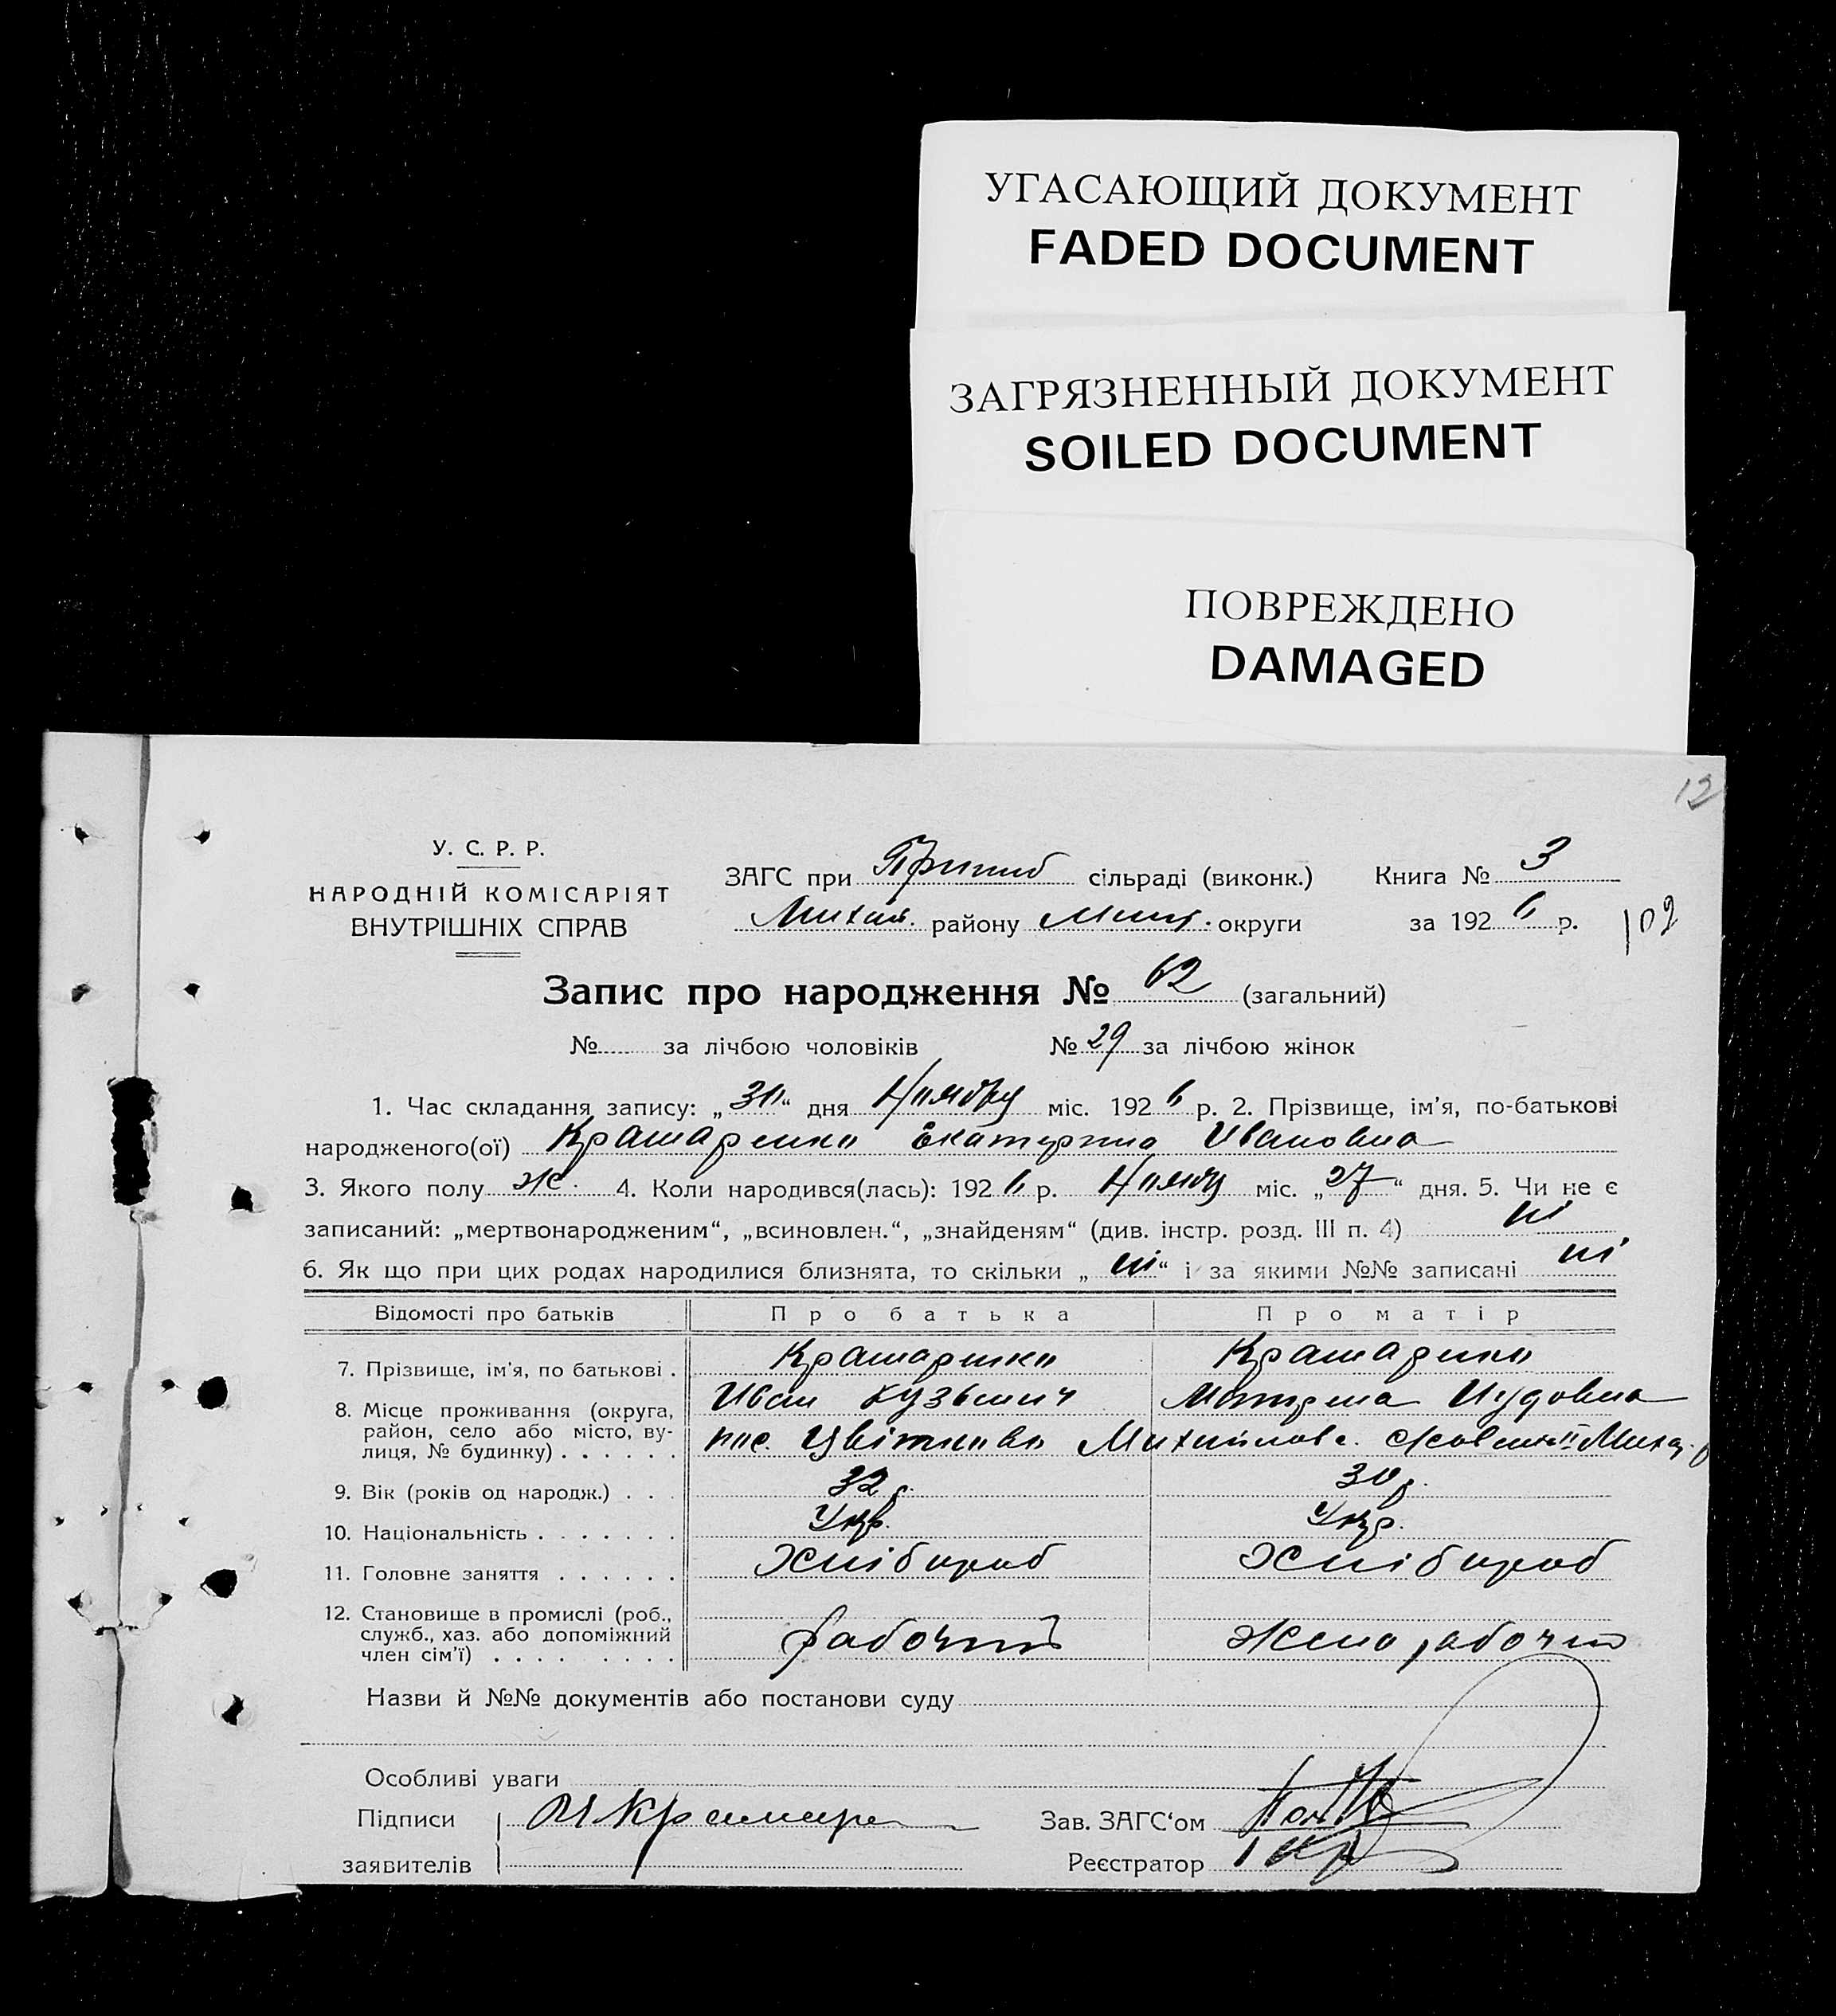 УГАСАЮЩИЙ ДОКУМЕНТ
FADED DOCUMENT
ЗАГРЯЗНЕННЫЙ ДОКУМЕНТ
SOILED DOCUMENT
ПОВРЕЖДЕНО
DAMAGED
12
У. С. Р. Р.
НАРОДНІЙ КОМІСАРІЯТ
ВНУТРІШНІХ СПРАВ
ЗАГС при сільраді (виконк.) Книга № 3
району округи за 1926 р. 102
Запис про народження № 62 (загальний)
№ за лічбою чоловіків № 29 за лічбою жінок
1. Час складання запису: „30“ дня Ноября міс. 1926 р. 2. Прізвище, ім'я, по-батькові
народженого(ої) Крамаренко Екатерина Ивановна
3. Якого полу ж. 4. Коли народився(лась): 1926 р. міс. „27“ дня. 5. Чи не є
записаний: „мертвонародженим“, „всиновлен.“, „знайденям“ (див. інстр. розд. III п. 4) ні
6. Як що при цих родах народилися близнята, то скільки „ні“ і за якими №№ записані ні
Відомості про батьків Про батька Про матір
7. Прізвище, ім'я, по батькові . Крамаренко Крамаренко
8. Місце проживання (округа, Иван Кузьмич Мотрена
район, село або місто, ву-
лиця, № будинку) . . . . . . пос.
9. Вік (років од народж.) . . . 32 р. 30 р.
10. Національність . . . . . . . Укр. Укр.
11. Головне заняття . . . . . . Хлібороб Хлібороб
12. Становище в промислі (роб.,
служб., хаз. або допоміжний
член сім'ї) . . . . . . . . Рабочий Жена рабочий
Назви й №№ документів або постанови суду
Особливі уваги
Підписи Зав. ЗАГС'ом
заявителів Реєстратор